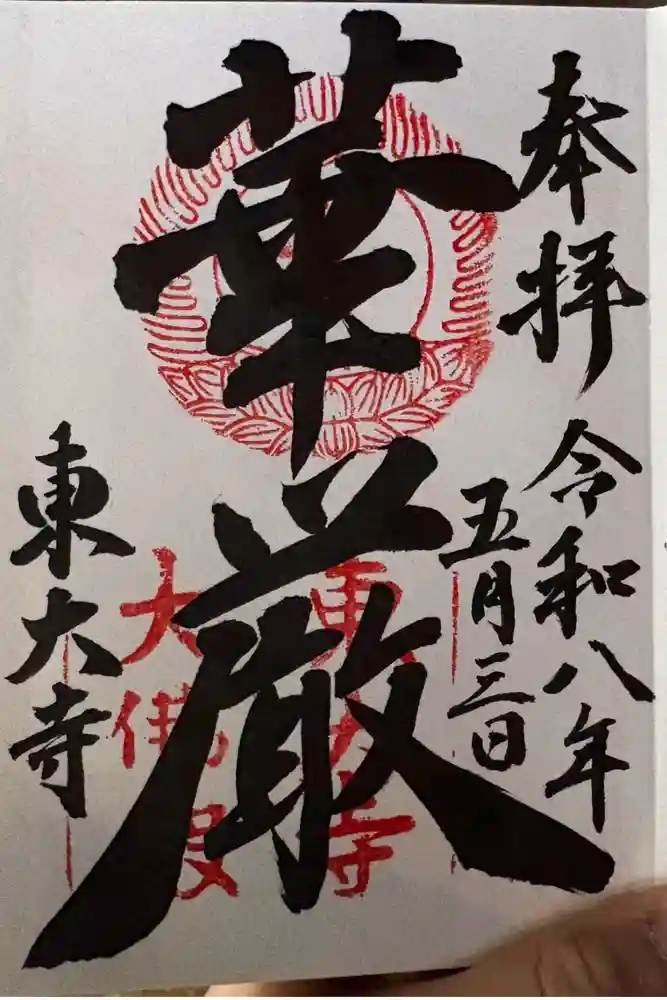 奉拝
令和八年
五月三日
華厳
東大寺
東大寺
大佛殿